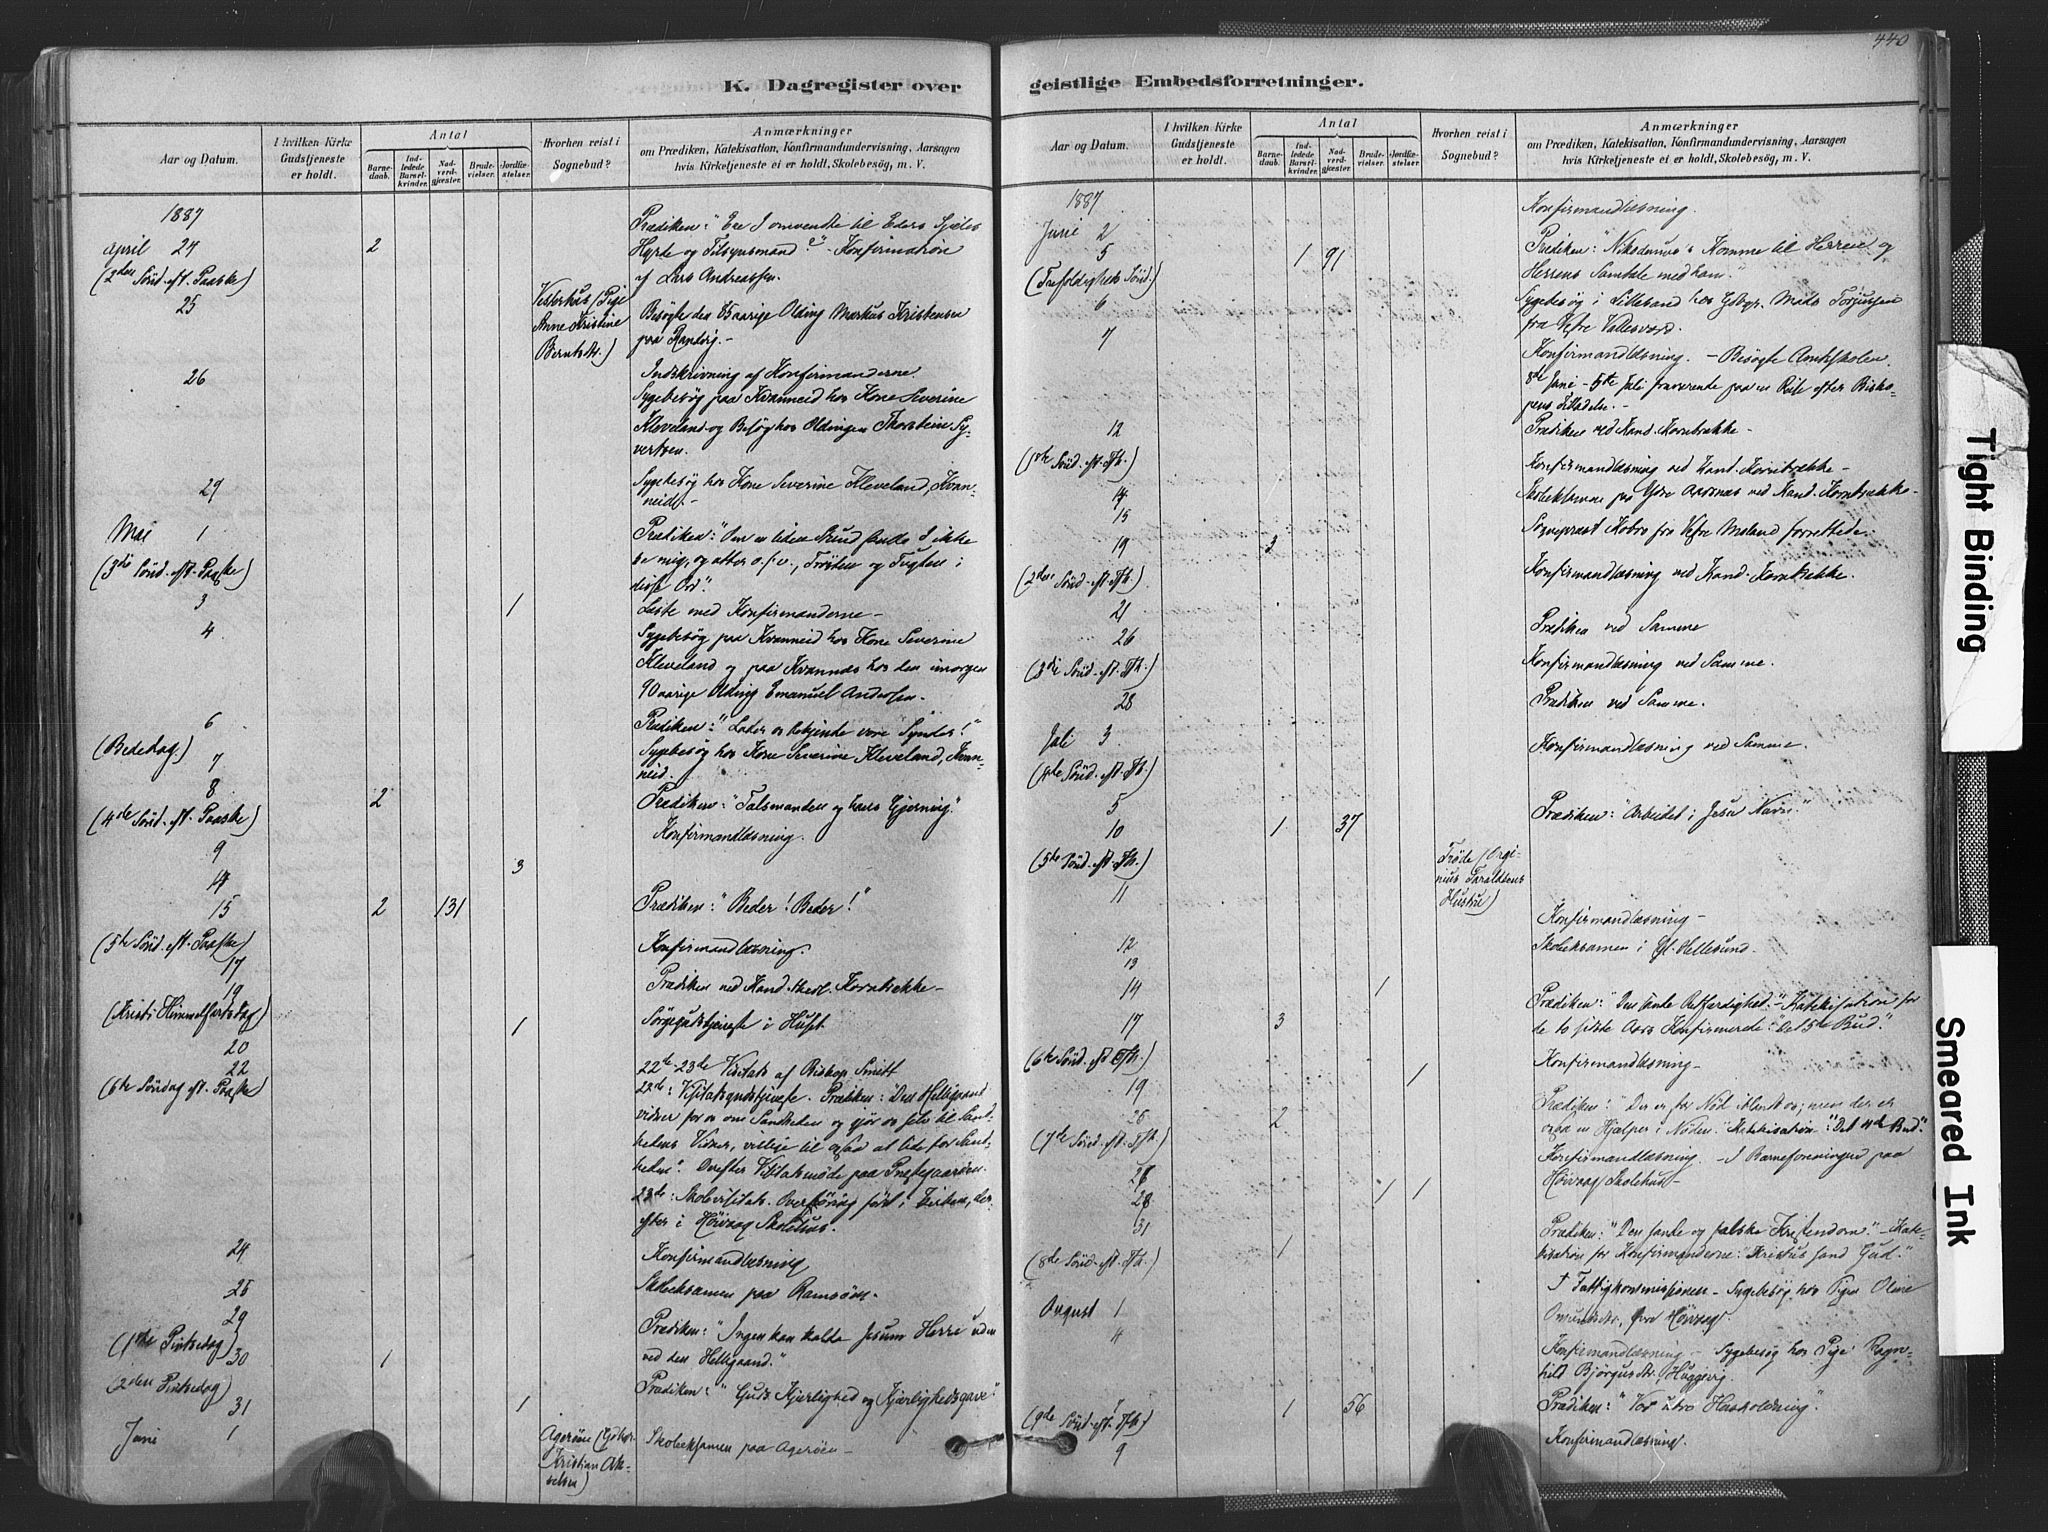 440
K. Dagregister over
geistlige Embedsforretninger.
Aar og Datum.
I hvilken Kirke Gudstjeneste er holdt.
Antal
Barnedaab.
Indledede Barselkvinder.
Nadverdgjæster.
Brudevielser.
Jordfæstelser.
Hvorhen reist i Sognebud?
Anmærkninger
om Prædiken, Katekisation, Konfirmandundervisning, Aarsagen
hvis Kirketjeneste ei er holdt, Skolebesøg, m. V.
1887
Prædiken: "Ere I omvendte til Eders Sjæles
april 24 2 Hyrde og Tilsynsmand?" - Konfirmation
(2den Sönd. eft. Paaske) af Lars Andreassen.
25 Vesterhus (Pige Anne Kristine Berntsdtr.) Besøgte den 85 aarige Olding Markus Kristensen
paa Randvig. -
26 Indskrivning af Konfirmanderne
Sygebesøg paa Kvanneid hos Kone Severine
Kleveland og Besøg hos Oldingen Thorstein Sy-
vertsen.
29 Sygebesøg hos Kone Severine Kleveland, Kvan-
neid. -
Mai 1 Prædiken: "Om en liden Stund skulle I ikke
(3die Sönd. eft. Paaske) se mig, og atter o.s.v., Trösten og Tugten i
disse Ord".
3 1 Læste med Konfirmanderne -
4 Sygebesøg paa Kvanneid hos Kone Severine
Kleveland og paa Kvannæs hos den imorgen
90 aarige Olding Emanuel Andersen. -
6 Prædiken: "Lader os bekjende vore Synder!"
(Bededag.)
7 Sygebesøg hos Kone Severine Kleveland, Kvan-
neid.
8 2 Prædiken: "Talsmanden og hans Gjerning."
(4de Sönd. eft. Paaske)
9 Konfirmandlæsning.
14 3
15 2 131 Prædiken: "Beder! Beder!"
(5te Sönd. eft. Paaske)
17 Konfirmandlæsning.
19 Prædiken ved Kand. theol. Kornbrække -
(Kristi Himmelfartsdag)
20 1 Sörgegudstjeneste i Huset
22 22de-23de Visitats af Biskop Smitt
(6te Söndag eft. Paaske) 22de: Visitatsgudstjeneste. Prædiken: Den Helligaand
vidner for os om Sandheden og gjør os selv til Sand-
hedens Vidner, villige til ogsaa at lide for Sand-
heden". Derefter Visitatsmøde paa Præstegaarden.
23de: Skolevisitats. Overhöring först i Kirken, der-
efter i Høivaag Skolehus.
24 Konfirmandlæsning
25 Skoleksamen paa Ramsöen.
29 Prædiken: "Ingen kan kalde Jesum Herre uden
(1ste Pintsedag) ved den Helligaand."
30 1 Prædiken: "Guds Kjærlighed og Kjærlighedsgave"
(2den Pintsedag)
31 1
Juni 1 Ageröen (Gdbr. Kristian Akselsen) Skoleksamen paa Ageröen -
Aar og Datum.
I hvilken Kirke Gudstjeneste er holdt.
Antal
Barnedaab.
Indledede Barselkvinder.
Nadverdgjæster.
Brudevielser.
Jordfæstelser.
Hvorhen reist i Sognebud?
Anmærkninger
om Prædiken, Katekisation, Konfirmandundervisning, Aarsagen
hvis Kirketjeneste ei er holdt, Skolebesøg, m. V.
1887
Juni 2 Konfirmandlæsning.
5 1 91 Prædiken: "Nikodemus's Komme til Herren og
(Trefoldigheds Sönd.) Herrens Samtale med ham."
6 Sygebesøg i Lillesand hos Gdbgr. Mads Torjussen
fra Vestre Vallesværd.
7 Konfirmandlæsning. - Besøgte Amtsskolen.
8de Juni - 5te Juli fraværende paa en Reise efter Bisko-
pens Tilladelse. -
12 Prædiken ved Kand. Kornbrække -
(1ste Sönd. eft. Th.)
14 Konfirmandlæsning ved Kand. Kornbrække -
15 Skoleksamen paa Ydre Aarsnæs ved Kand. Kornbrække -
19 3 Sognepræst Kobro fra Vestre Moland forrettede. -
(2den Sönd. eft. Th.)
21 Konfirmandlæsning ved Kand. Kornbrække.
26 Prædiken ved Samme
(3die Sönd. eft. Th.)
28 Konfirmandlæsning ved Samme.
Juli 3 Prædiken ved Samme.
(4de Sönd. eft. Th.)
5 Konfirmandlæsning ved Samme.
10 1 37 Prædiken: "Arbeidet i Jesu Navn."
(5te Sönd. eft. Th.)
11 Tröde (Orginius Taraldsens Hustru)
12 Konfirmandlæsning -
13 Skoleksamen i Gl. Hellesund.
14 1
17 3 Prædiken: "Den sande Retfærdighed." - Katekisation for
(6te Sönd. eft. Th.) de to sidste Aars Konfirmerede: "Det 5te Bud."
19 1 Konfirmandlæsning -
25 2 Prædiken: "Der er for Nød iblandt os; men der er
(7de Sönd. eft. Th.) ogsaa en Hjælper i Nöden." Katekisation: "Det 4de Bud."
26 Konfirmandlæsning. - I Barneforeningen paa
28 1 1 Høivaag Skolehus -
31 1 Prædiken: "Den sande og falske Kristendom." - Kate-
(8de Sönd. eft. Th.) kisation for Konfirmanderne: "Kristus sand Gud."
August 1 I Fattigkommissionen - Sygebesøg hos Pigen Oline
Omundsdtr, Øvre Høivaag
4 Konfirmandlæsning - Sygebesøg hos Pige Ragn-
hild Björgusdtr., Hæggevig.
7 1 56 Prædiken: "Vor utro Husholdning"
(9de Sönd. eft. Th.)
9 Konfirmandlæsning.
Tight Binding
Smeared Ink